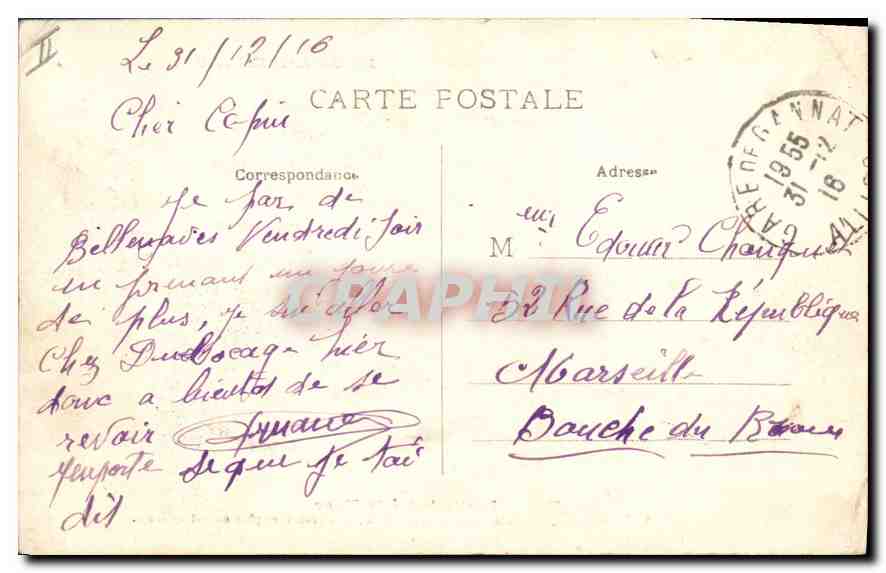 II
Le 31/12/16
Cher Copin
CARTE POSTALE
Correspondance
Je pars de
Bellenaves Vendredi soir
en prenant un jour
de plus, je suis aller
Chez Dubocage hier
donc a bientot de se
revoir Armand
J'emporte se que je tai
dit
Adresse
M
Edouard
52 Rue de la République
Marseille
Bouche du Rhone
GARE DE GANNAT
19 55
31 -12
16
ALLIER
CPAPHIL